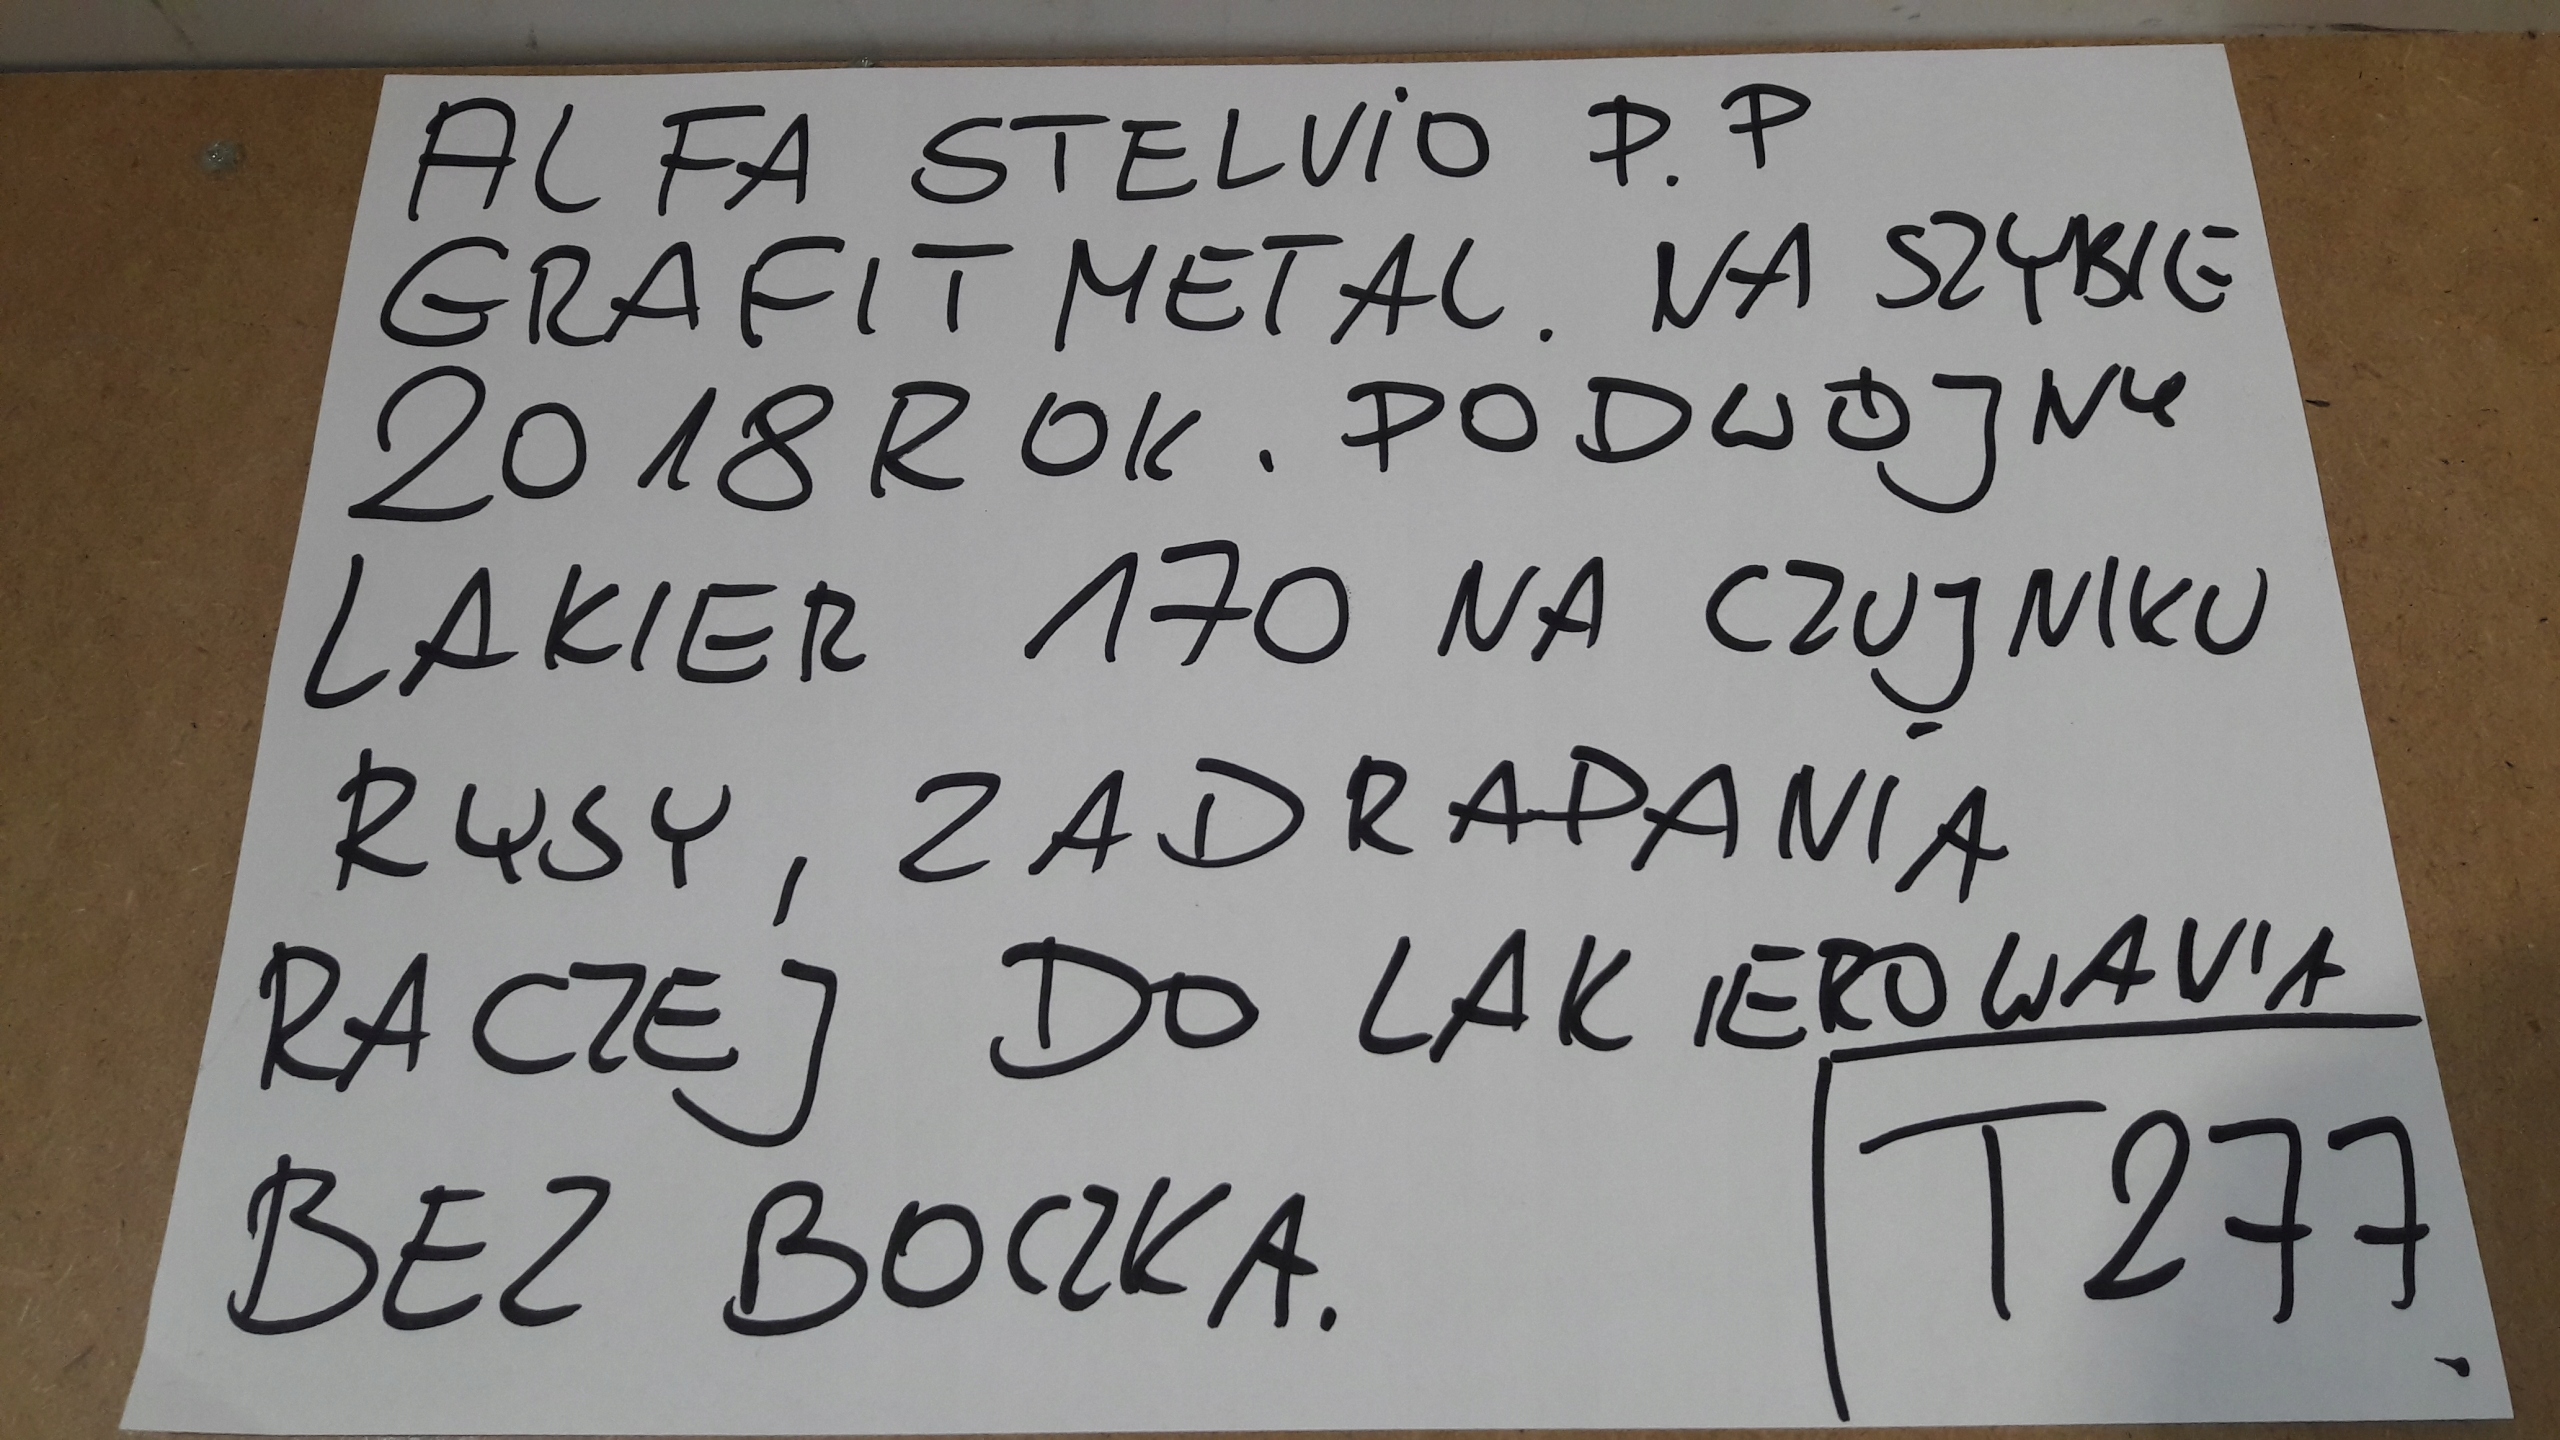 ALFA STELVIO P.P
GRAFIT METAL. NA SZYBIE
2018 ROK. PODWÓJNY
LAKIER 170 NA CZUJNIKU
RYSY, ZADRAPANIA
RACZEJ DO LAKIEROWANIA
BEZ BOCZKA.
T277